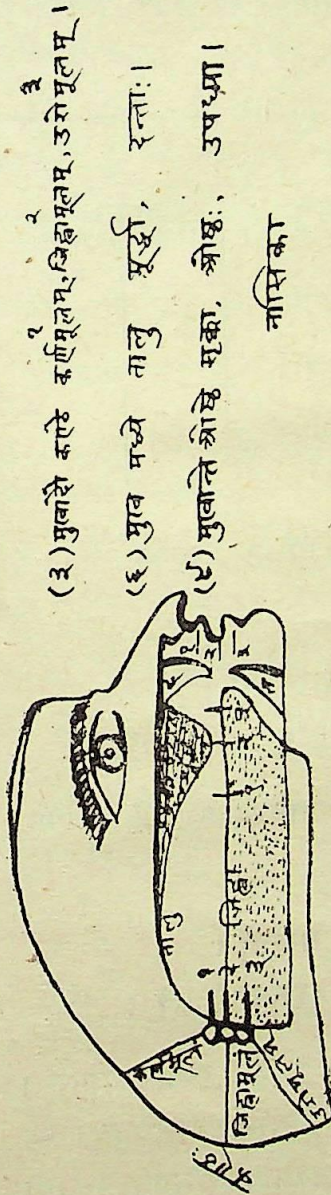 १ २ ३
(३) मुखादौ कण्ठे कर्णमूलम्, जिह्वामूलम्, उरोमूलम् ।
(६) मुख मध्ये तालु मूर्द्धा, दन्ताः ।
(९) मुखान्ते ओष्ठे सृक्का, ओष्ठः, उपध्मा ।
नासिका
तालु
जिह्वा
१ २ ३
कर्णमूलं
जिह्वामूलं
उरोमूलम्
कण्ठः